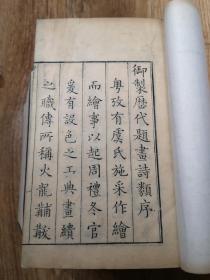 御製歷代題畫詩類序
粤攷有虞氏施采作繪
而繪事以起周禮冬官
爰有設色之工典畫繢
之職傳所稱火龍黼黻